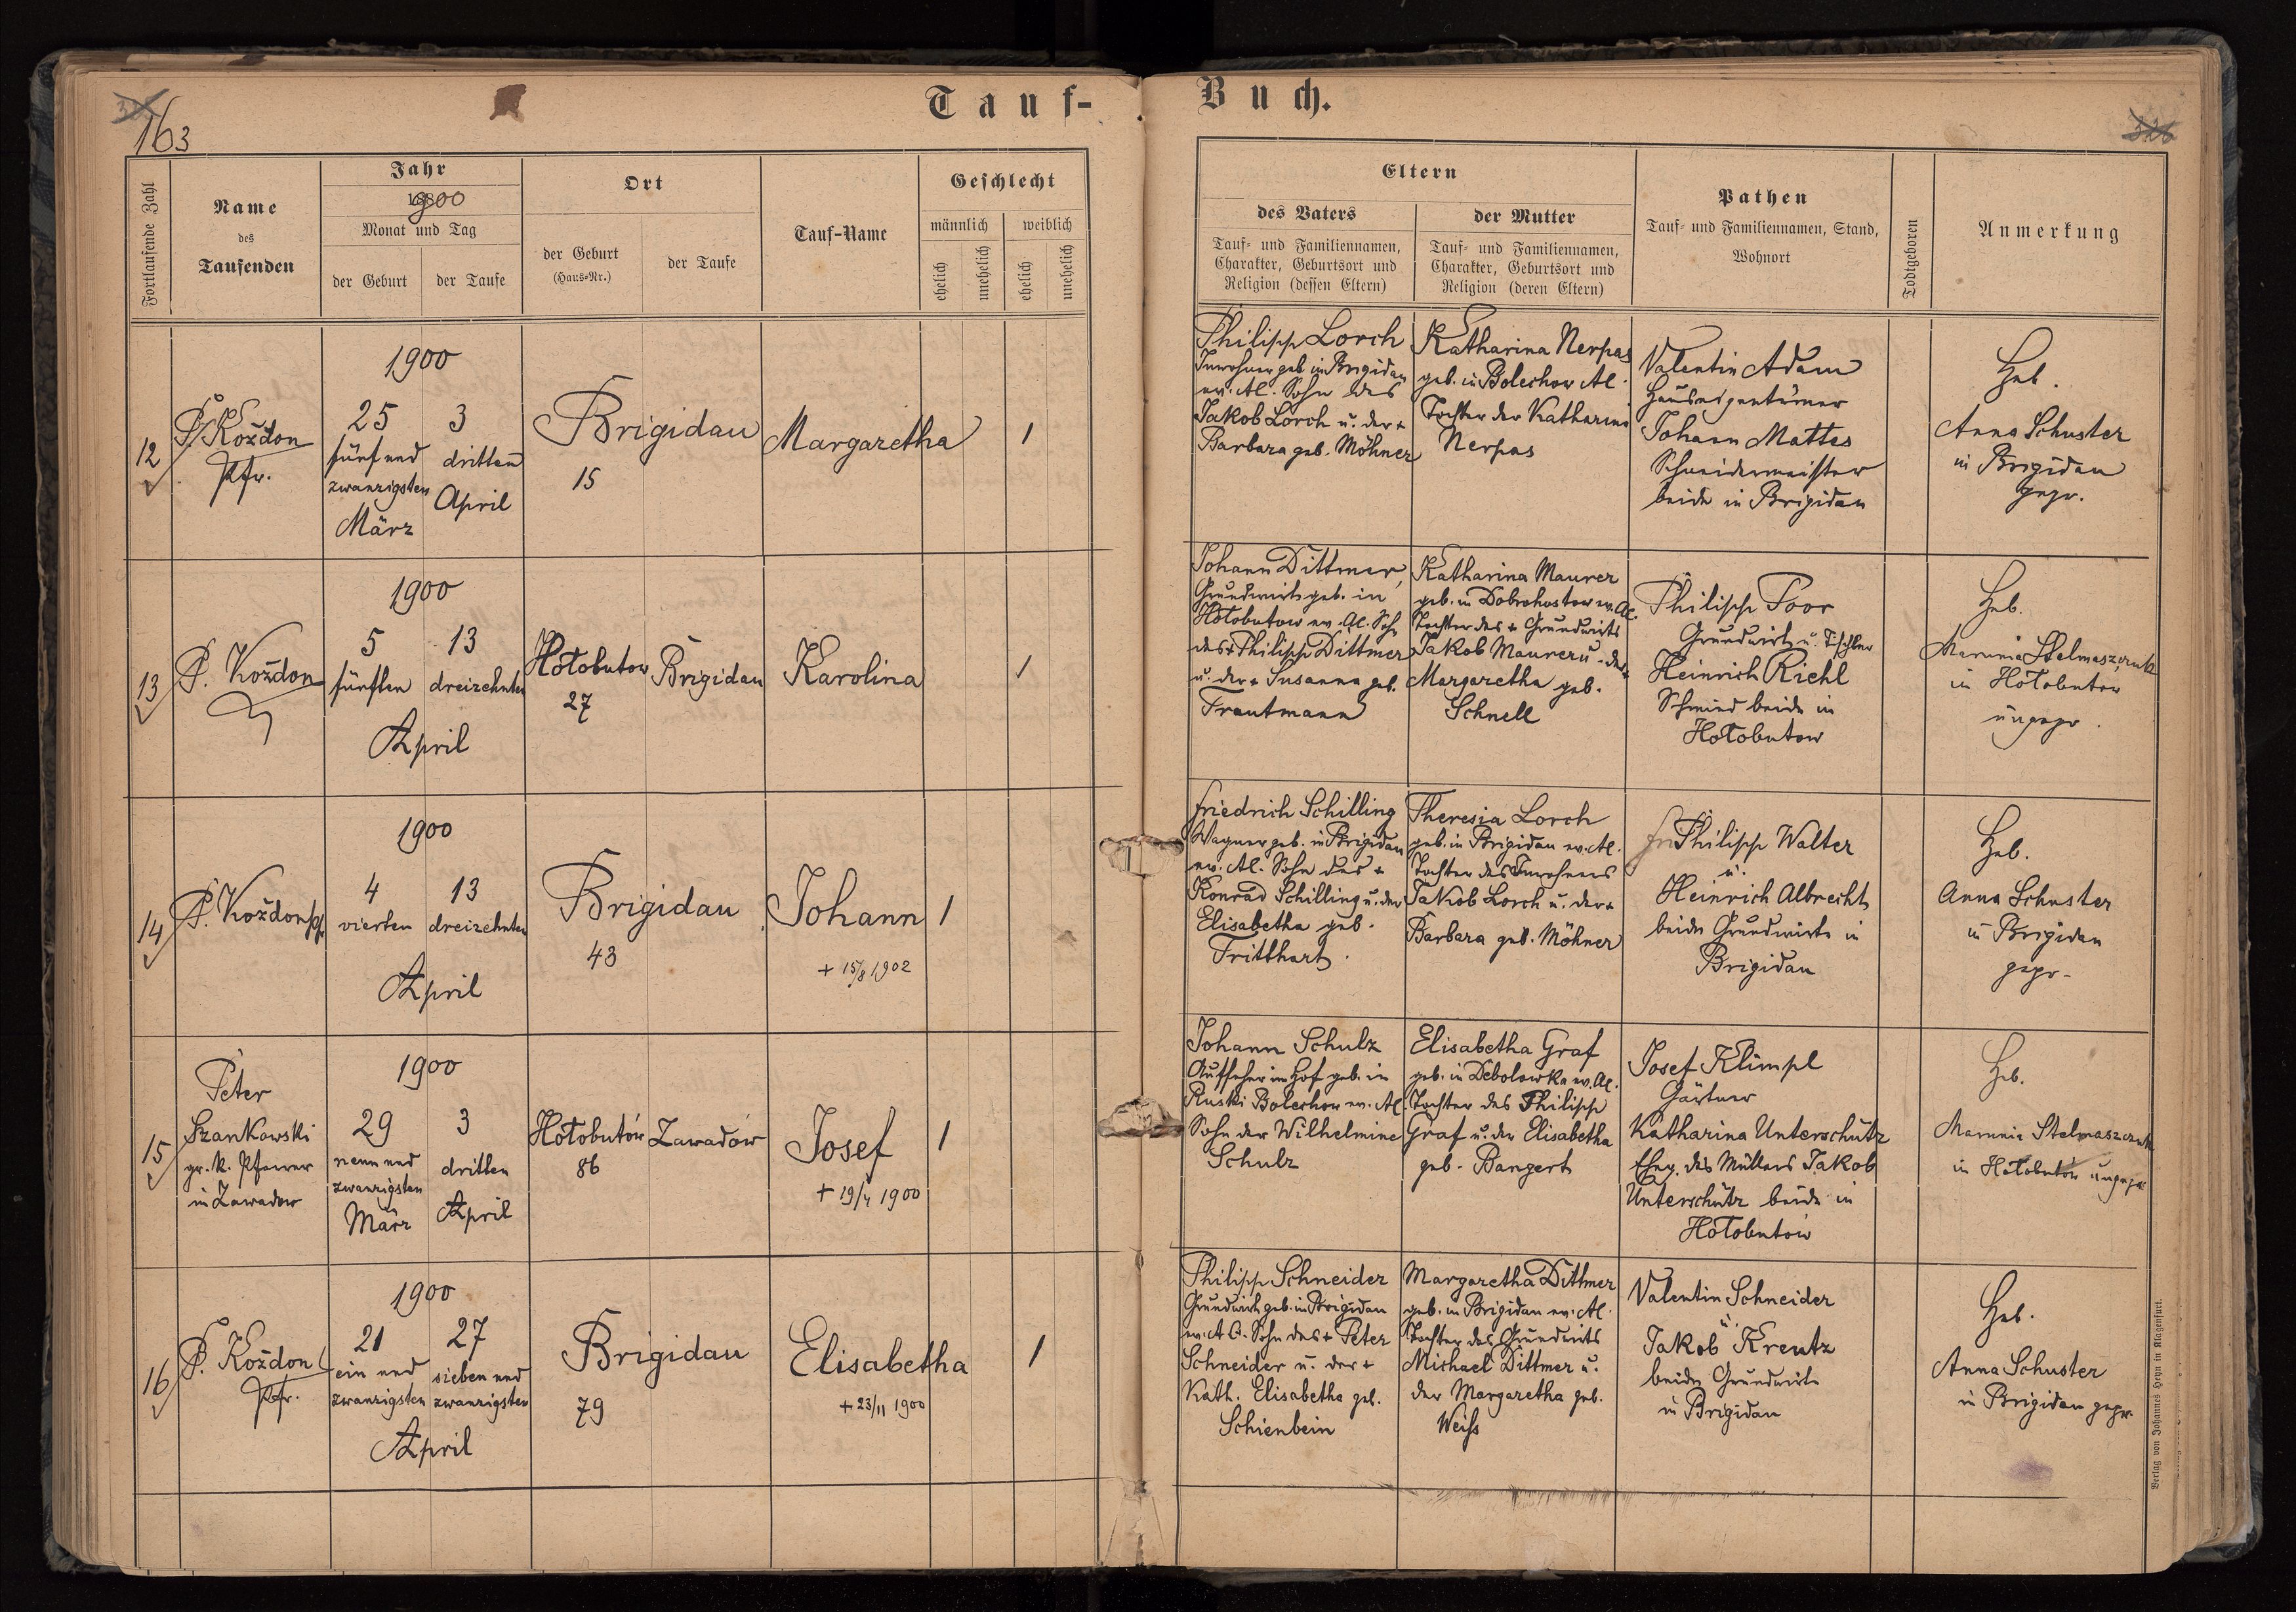 Tauf- Buch.
163
Fortlaufende Zahl
Name
des
Taufenden
Jahr
1900
Monat und Tag
der Geburt
der Taufe
Ort
der Geburt
(Haus-Nr.)
der Taufe
Tauf-Name
Geschlecht
männlich
weiblich
ehelich
unehelich
ehelich
unehelich
Eltern
des Vaters
Tauf- und Familiennamen,
Charakter, Geburtsort und
Religion (dessen Eltern)
der Mutter
Tauf- und Familiennamen,
Charakter, Geburtsort und
Religion (deren Eltern)
Pathen
Tauf- und Familiennamen, Stand,
Wohnort
Todtgeboren
Anmerkung
12
P. Koždon
Pfr.
1900
25
fünf und
zwanzigsten
März
3
dritten
April
Brigidau
15
Margaretha
1
Philipp Lorch
Inwohner geb in Brigidau
ev. Al. Sohn des
Jakob Lorch u. der +
Barbara geb. Möhner
Katharina Nerpas
geb. in Bolechow Al.
Tochter der Katharina
Nerpas
Valentin Adam
Hauseigentümer
Johann Mattes
Schneidermeister
beide in Brigidau
Heb.
Anna Schuster
in Brigidau
gepr.
13
P. Koždon
1900
5
fünften
13
dreizehnten
April
Hołobutow
27
Brigidau
Karolina
1
Johann Dittmer,
Grundwirt geb. in
Hołobutow ev. Al. Sohn
des + Philipp Dittmer
u. der + Susanna geb.
Trautmann
Katharina Maurer
geb. in Dobrohostow ev. Al.
Tochter des + Grundwirts
Jakob Maurer u. der +
Margaretha geb.
Schnell
Philipp Poor
Grundwirt u. Tischler
Heinrich Riehl
Schmied beide in
Hołobutow
Heb.
Marunia Stelmaszczuk
in Hołobutow
ungepr.
14
P. Koždon Pfr
1900
4
vierten
13
dreizehnten
April
Brigidau
43
Johann
+ 15/8 1902
1
Friedrich Schilling
Wagner geb. in Brigidau
ev. Al. Sohn des +
Konrad Schilling u. der
Elisabetha geb.
Tritthart.
Theresia Lorch
geb. in Brigidau ev. Al.
Tochter des Inwohners
Jakob Lorch u. der +
Barbara geb. Möhner
Philipp Walter
u.
Heinrich Albrecht
beide Grundwirte in
Brigidau
Heb.
Anna Schuster
in Brigidau
gepr.
15
Peter
Szankowski
gr. k. Pfarrer
in Zawadow
1900
29
neun und
zwanzigsten
März
3
dritten
April
Hołobutów
86
Zawadów
Josef
+ 19/4 1900
1
Johann Schulz
Aufseher im Hof geb. in
Ruski Bolechow ev. Al
Sohn der Wilhelmine
Schulz
Elisabetha Graf
geb. in Debolowka ev. Al.
Tochter des Philipp
Graf u. der Elisabetha
geb. Bangert
Josef Klimpl
Gärtner
Katharina Unterschütz
Eheg. des Müllers Jakob
Unterschütz beide in
Hołobutów
Heb.
Marunia Stelmaszczuk
in Hołobutów ungepr
16
P. Koždon
Pfr.
1900
21
ein und
zwanzigsten
27
sieben und
zwanzigsten
April
Brigidau
79
Elisabetha
+ 23/11 1900
1
Philipp Schneider
Grundwirt geb. in Brigidau
ev. A.C. Sohn des + Peter
Schneider u. der +
Kath. Elisabetha geb.
Schienbein
Margaretha Dittmer
geb. in Brigidau ev. Al.
Tochter des Grundwirts
Michael Dittmer u.
der Margaretha geb.
Weiß
Valentin Schneider
u.
Jakob Kreutz
beide Grundwirte
in Brigidau
Heb.
Anna Schuster
in Brigidau gepr.
Verlag von Johannes Heyn in Klagenfurt.